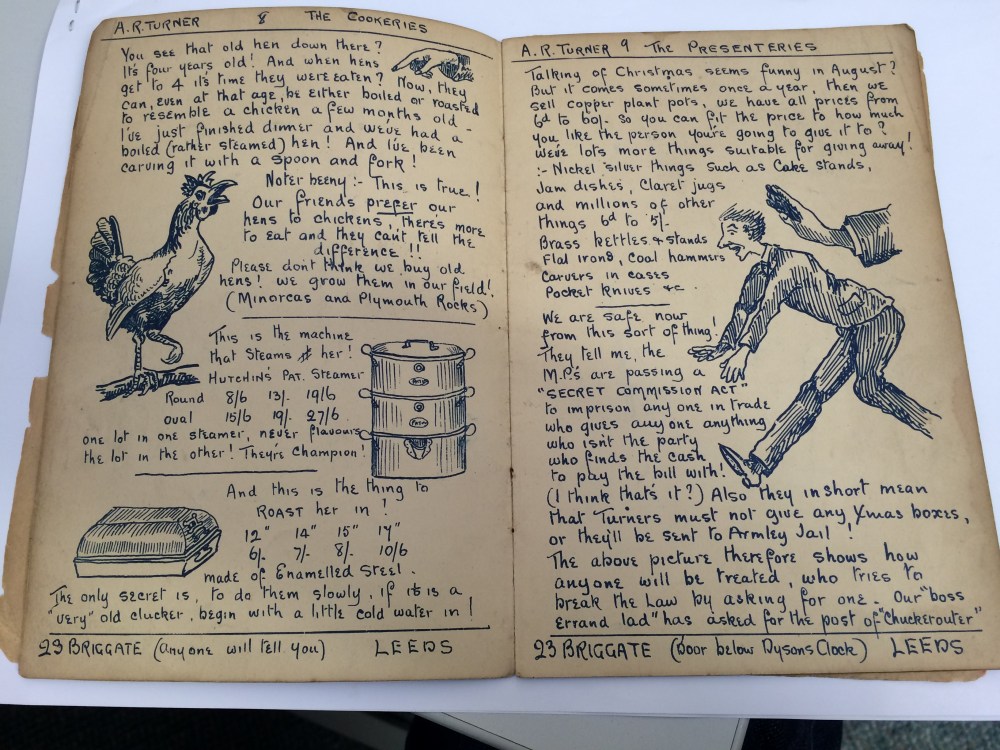 A.R. TURNER 8 THE COOKERIES
You see that old hen down there?
It's four years old! And when hens
get to 4 it's time they were eaten? Now, they
can, even at that age, be either boiled or roasted
to resemble a chicken a few months old -
I've just finished dinner and we've had a
boiled (rather steamed) hen! And I've been
carving it with a spoon and fork!
Noter beeny :- This is true!
Our friends prefer our
hens to chickens, there's more
to eat and they can't tell the
difference!!
Please don't think we buy old
hens! we grow them in our field!
(Minorcas and Plymouth Rocks)
This is the machine
that Steams her!
HUTCHIN'S PAT. STEAMER
Round 8/6 13/- 19/6
oval 15/6 19/- 27/6
one lot in one steamer, never flavours
the lot in the other! They're Champion!
And this is the thing to
ROAST her in!
12" 14" 15" 17"
6/- 7/- 8/- 10/6
made of Enamelled Steel.
The only secret is, to do them slowly, if it is a
"very" old clucker, begin with a little cold water in!
23 BRIGGATE (any one will tell you) LEEDS
A.R. TURNER 9 THE PRESENTERIES
Talking of Christmas seems funny in August?
But it comes sometimes once a year, then we
sell copper plant pots, we have all prices from
6d to 60/- so you can fit the price to how much
you like the person you're going to give it to?
we've lots more things suitable for giving away!
:- Nickel silver things such as Cake stands,
Jam dishes, Claret jugs
and millions of other
things 6d to 5/-
Brass kettles & stands
Flat irons, Coal hammers
Carvers in cases
Pocket knives &c
We are safe now
from this sort of thing!
They tell me, the
M.P.'s are passing a
"SECRET COMMISSION ACT"
to imprison any one in trade
who gives any one anything
who isn't the party
who finds the cash
to pay the bill with!
(I think that's it?) Also they in short mean
that Turners must not give any Xmas boxes,
or they'll be sent to Armley Jail!
The above picture therefore shows how
anyone will be treated, who tries to
break the Law by asking for one. Our "boss
Errand lad" has asked for the post of "Chuckerouter"
23 BRIGGATE (Door below Dysons Clock) LEEDS